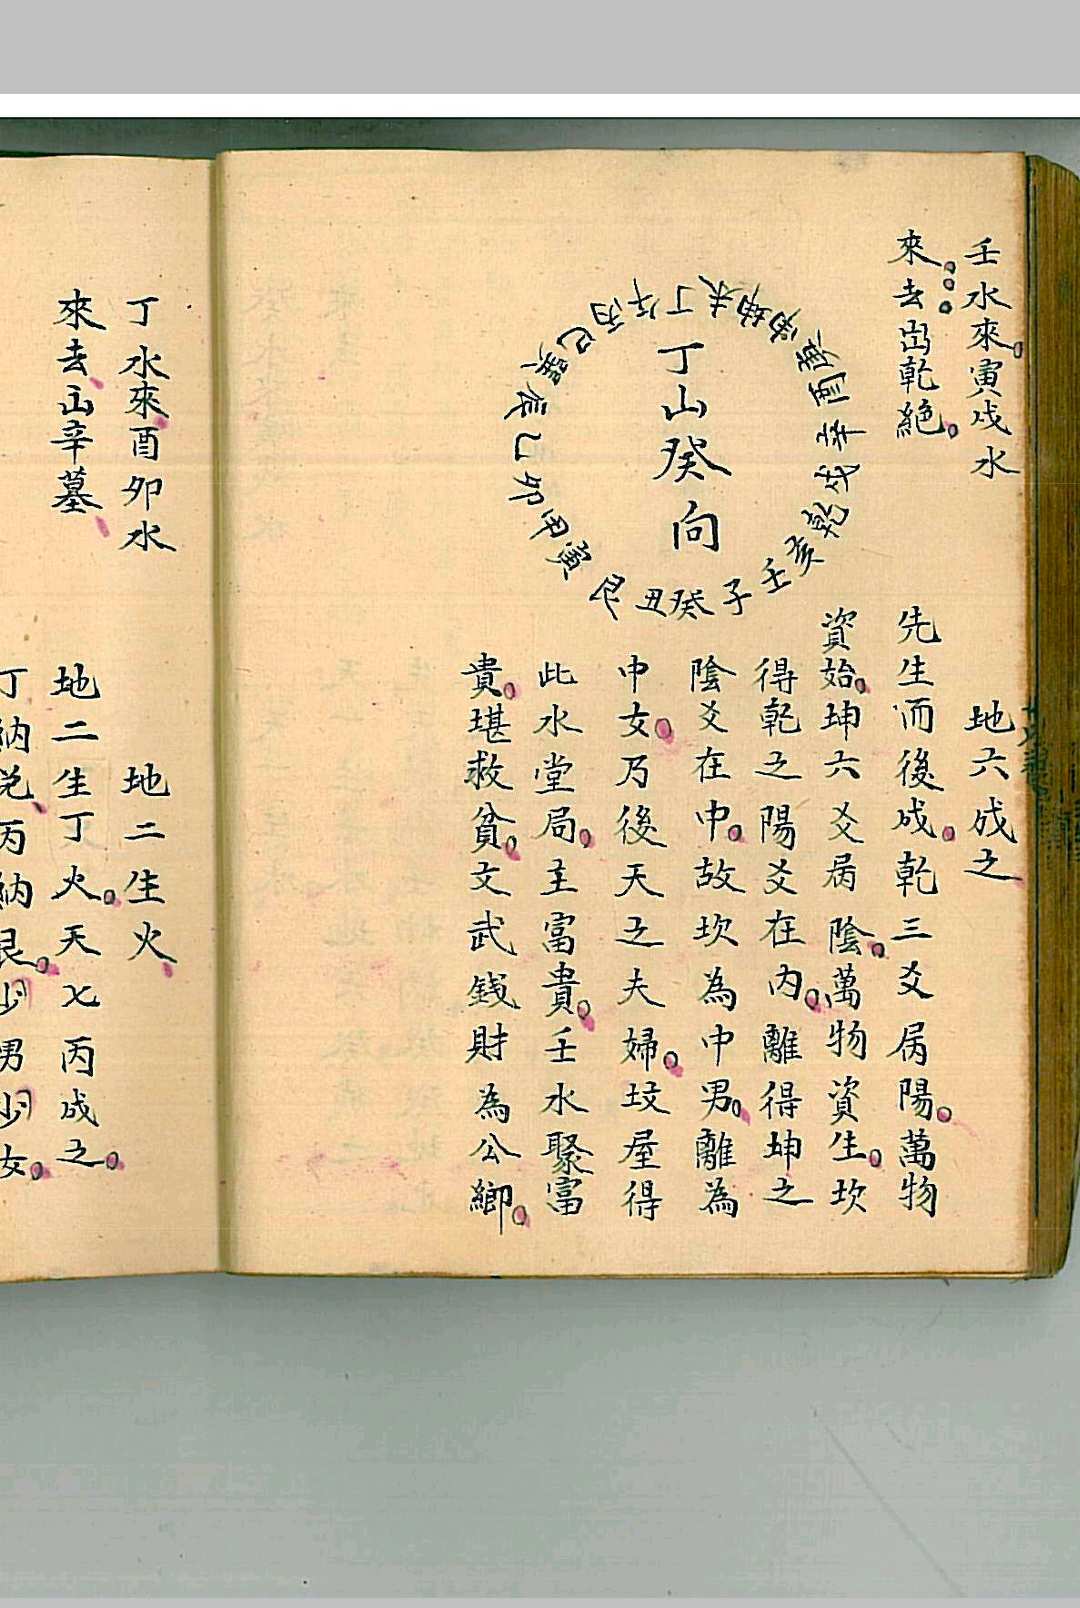 壬水來。寅戌水
來。去出乾絕。
丁山癸向
丁未坤申庚酉辛戌乾亥壬子癸丑艮寅甲卯乙辰巽巳丙午
地六成之
先生而後成。乾三爻屬陽。萬物
資始。坤六爻屬陰。萬物資生。坎
得乾之陽爻在內。離得坤之
陰爻在中。故坎為中男。離為
中女。乃後天之夫婦。坟屋得
此水堂局。主富貴。壬水聚富
貴。堪救貧。文武錢財為公鄉。
丁水來酉卯水
來去出辛墓
地二生火
地二生丁火。天七丙成之。
丁納兌丙納艮。少男少女。